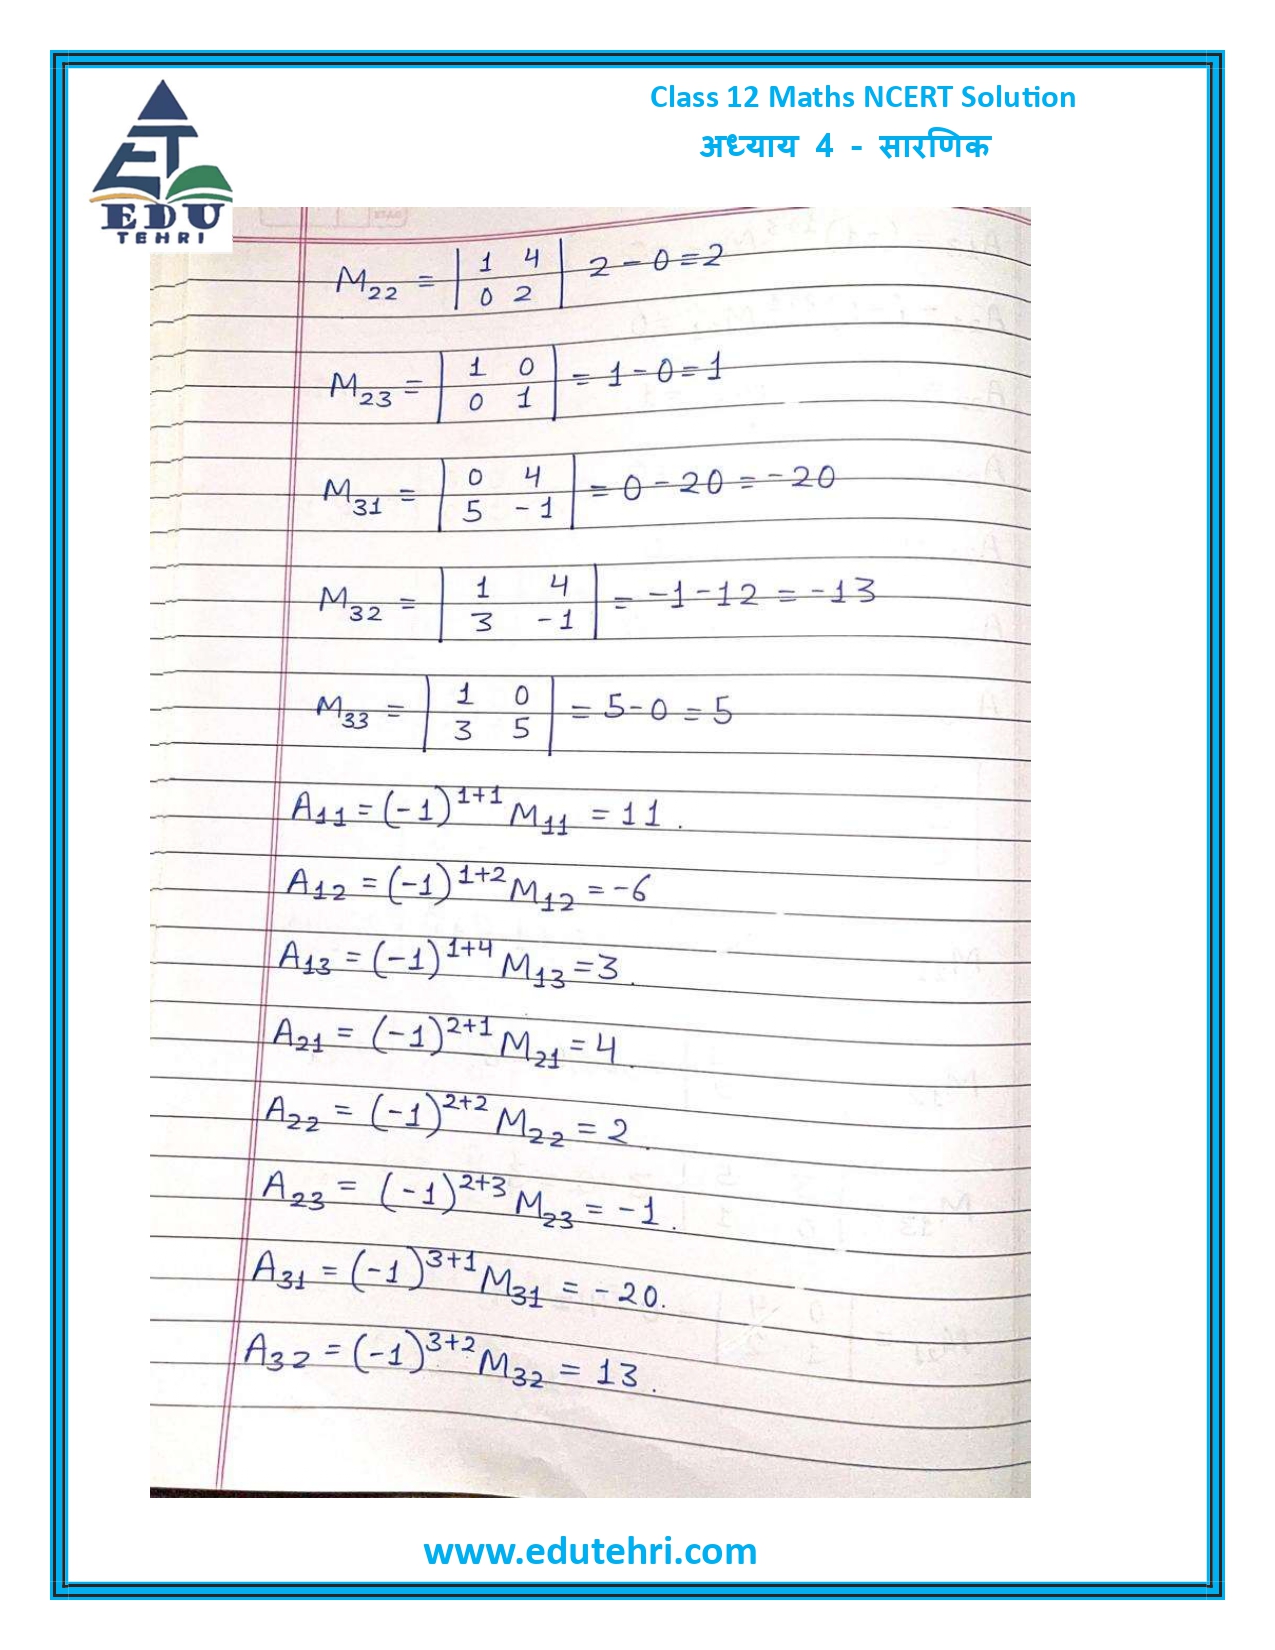 Class 12 Maths NCERT Solution
अध्याय 4 - सारणिक
EDU
TEHRI
M₂₂ = | 1 4 | 2 - 0 = 2
| 0 2 |
M₂₃ = | 1 0 | = 1 - 0 = 1
| 0 1 |
M₃₁ = | 0 4 | = 0 - 20 = -20
| 5 -1 |
M₃₂ = | 1 4 | = -1 - 12 = -13
| 3 -1 |
M₃₃ = | 1 0 | = 5 - 0 = 5
| 3 5 |
A₁₁ = (-1)¹⁺¹ M₁₁ = 11.
A₁₂ = (-1)¹⁺² M₁₂ = -6
A₁₃ = (-1)¹⁺⁴ M₁₃ = 3.
A₂₁ = (-1)²⁺¹ M₂₁ = 4.
A₂₂ = (-1)²⁺² M₂₂ = 2.
A₂₃ = (-1)²⁺³ M₂₃ = -1.
A₃₁ = (-1)³⁺¹ M₃₁ = -20.
A₃₂ = (-1)³⁺² M₃₂ = 13.
www.edutehri.com